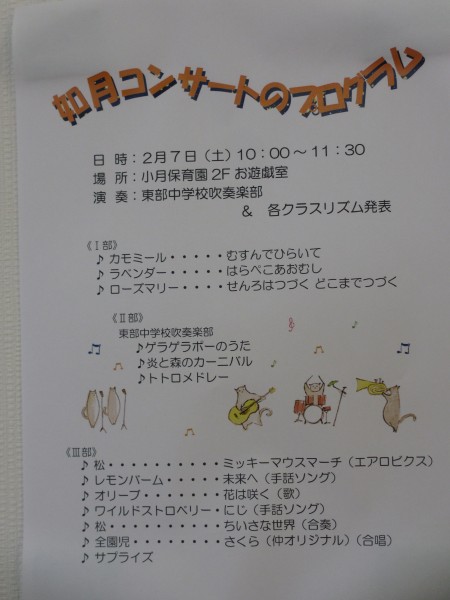 如月コンサートのプログラム
日 時：２月７日（土）１０：００～１１：３０
場 所：小月保育園２Ｆお遊戯室
演 奏：東部中学校吹奏楽部
＆ 各クラスリズム発表
《Ⅰ部》
♪ カモミール・・・・・むすんでひらいて
♪ ラベンダー・・・・・はらぺこあおむし
♪ ローズマリー・・・・せんろはつづく どこまでつづく
《Ⅱ部》
東部中学校吹奏楽部
♪ゲラゲラポーのうた
♪炎と森のカーニバル
♪トトロメドレー
《Ⅲ部》
♪ 松・・・・・・・・・・ミッキーマウスマーチ（エアロビクス）
♪ レモンバーム・・・・・未来へ（手話ソング）
♪ オリーブ・・・・・・・花は咲く（歌）
♪ ワイルドストロベリー・にじ（手話ソング）
♪ 松・・・・・・・・・・ちいさな世界（合奏）
♪ 全園児・・・・・・・・さくら（仲オリジナル）（合唱）
♪ サプライズ